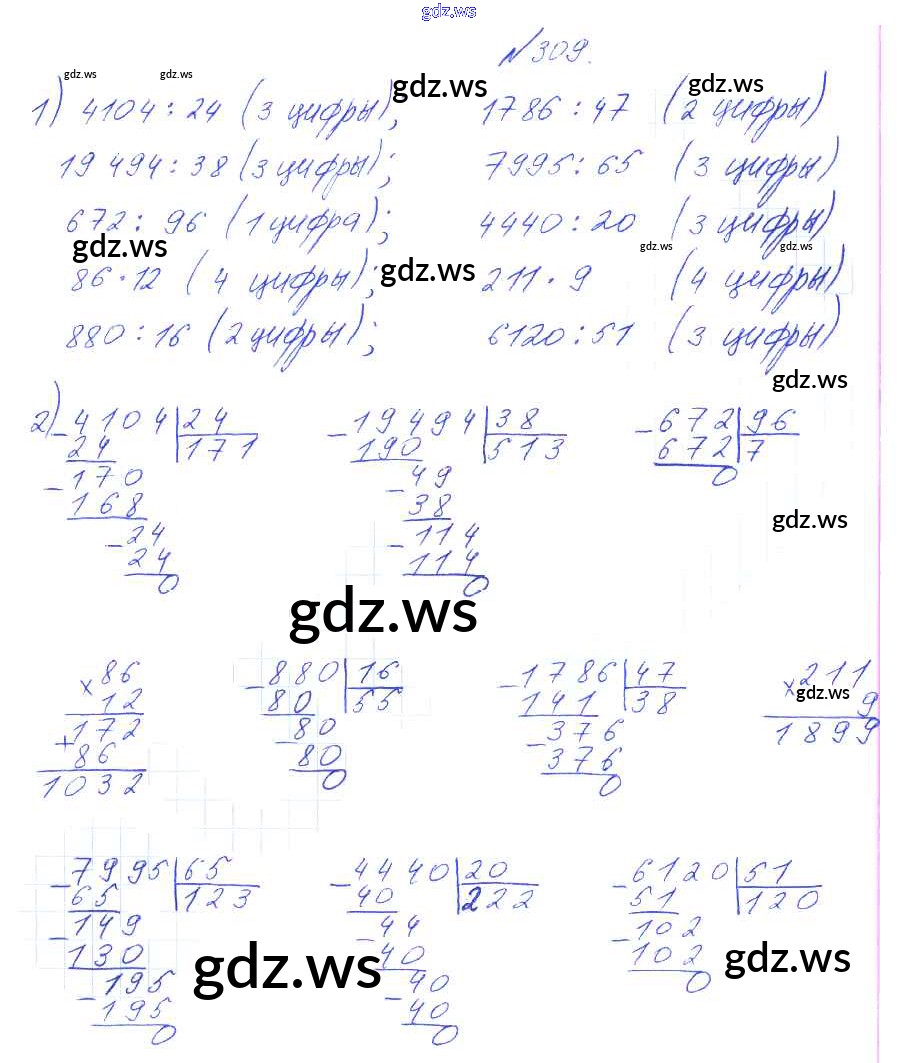 gdz.ws
№309.
gdz.ws gdz.ws gdz.ws gdz.ws
1) 4104 : 24 (3 цифры); 1786 : 47 (2 цифры)
19 494 : 38 (3 цифры); 7995 : 65 (3 цифры)
672 : 96 (1 цифра); 4440 : 20 (3 цифры)
gdz.ws gdz.ws gdz.ws gdz.ws
86 · 12 (4 цифры); 211 · 9 (4 цифры)
880 : 16 (2 цифры); 6120 : 51 (3 цифры)
gdz.ws
2) - 4104 | 24 - 19494 | 38 - 672 | 96
24 171 190 513 672 7
- 170 - 49 0
168 38
gdz.ws
- 24 - 114
24 114
0 0
gdz.ws
× 86 - 880 | 16 - 1786 | 47 × 211
gdz.ws
12 80 55 141 38 9
172 - 80 - 376 1899
+ 86 80 376
1032 0 0
- 7995 | 65 - 4440 | 20 - 6120 | 51
65 123 40 222 51 120
- 149 - 44 - 102
130 40 102
gdz.ws gdz.ws
- 195 - 40 0
195 40
0 0